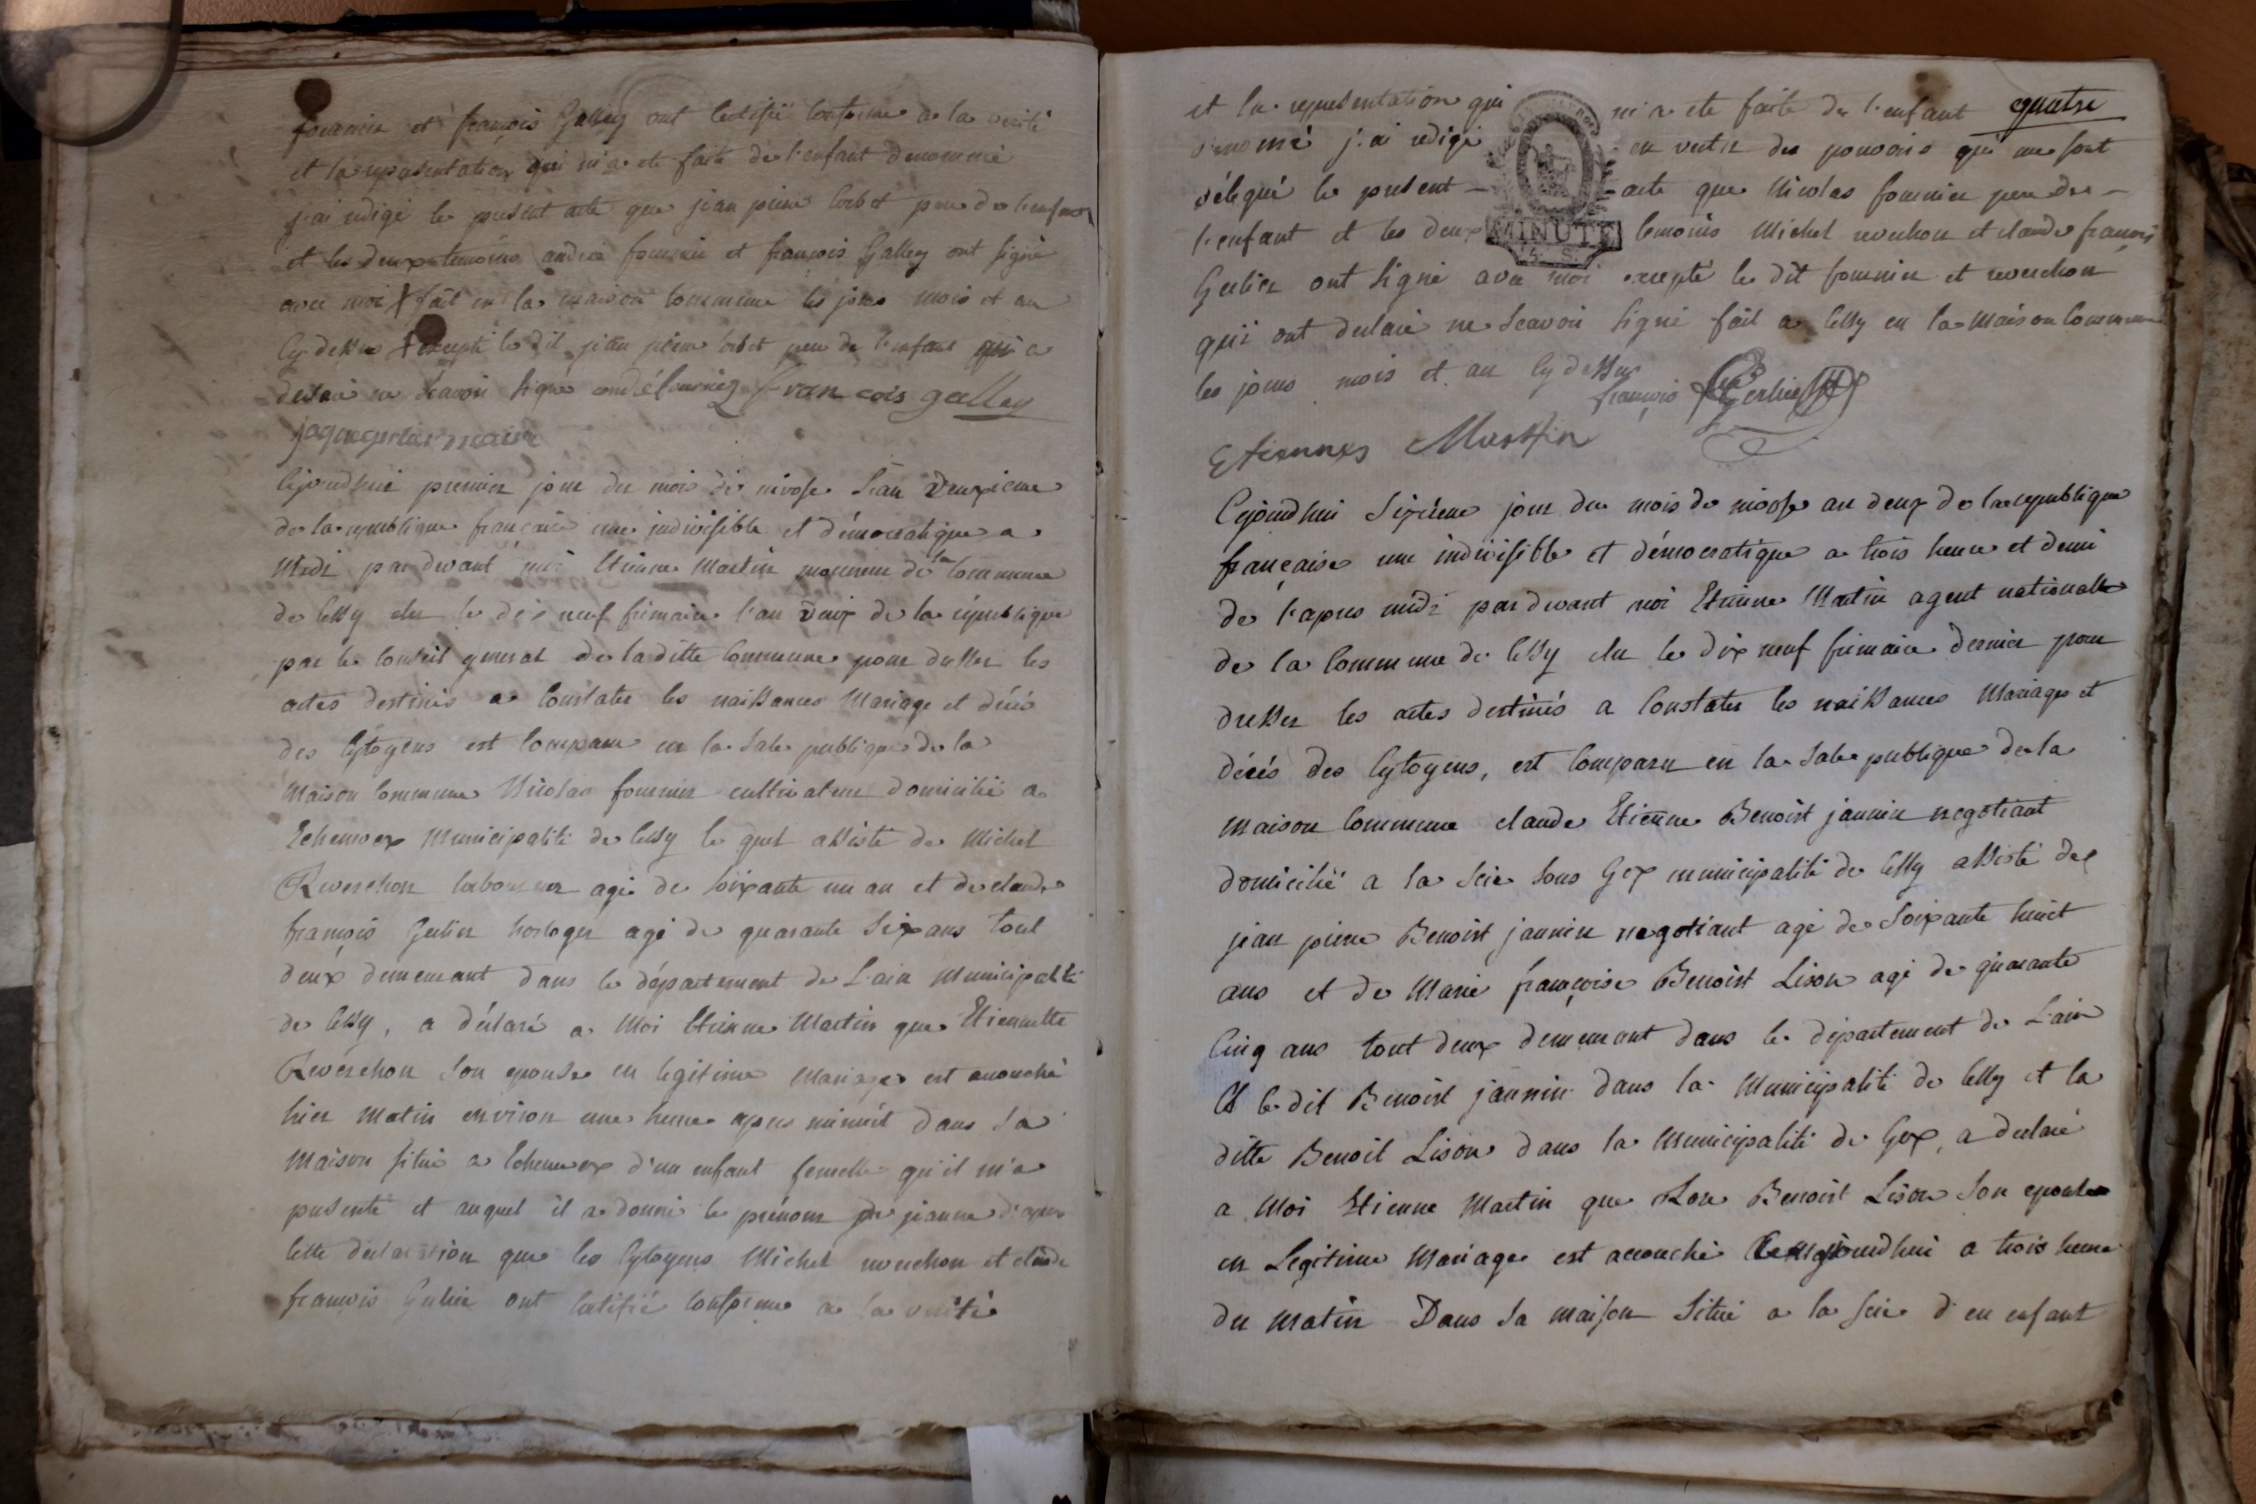 fournier et françois Galley ont certifié conforme a la verité
et la representation qui m'a eté faite de l'enfant denommé
j'ai redigé le present acte que jean pierre corbet pere de l'enfant
et les deux temoins andre fournier et françois Galley ont signé
avec moi fait en la maison commune les jours mois et an
cydessus excepté le dit jean pierre corbet pere de l'enfant qui a
declaré ne scavoir signe andé fournier francois galley
jaque maire
Cejourdhui premier jour du mois de nivose l'an deuxieme
de la republique française une indivisible et démocratique a
Midi par devant moi Etienne Martin de la commune
de Cessy elu le dix neuf frimaire l'an deux de la république
par le conseil general de la ditte commune pour dresser les
actes destinés a constater les naissances Mariage et décés
des Cytoyens est comparu en la sale publique de la
Maison commune Nicolas fournier cultivateur domicilié a
Echenevex Municipalité de Cessy le quel assisté de Michel
Reverchon laboureur agé de soixante un an et de claude
françois Gerlier horloger agé de quarante six ans tout
deux demeurant dans le département de L'ain Municipalité
de Cessy, a déclaré a Moi Etienne Martin que Etiennette
Reverchon son epouse en legitime Mariage est acouché
hier Matin environ une heure apres minuit dans sa
Maison situé a Echenevex d'un enfant femelle qu'il m'a
presenté et auquel il a donné le prénom de jeanne d'apres
cette declaration que les Cytoyens Michel reverchon et claude
françois Gerlier ont certifié conforme a la verité
et la representation qui m'a eté faite de l'enfant quatre
denomé j'ai redigé en vertu des pouvoirs qui me sont
délegué le present - acte que Nicolas fournier pere de -
l'enfant et les deux temoins Michel reverchon et claude françois
MINUTE
Gerlier ont signé avec moi excepté le dit fournier et reverchon
qui ont declaré ne scavoir signé fait a Cessy en la Maison Commune
les jours mois et an cy dessus
françois Gerlier
Etiennes Marttin
Cejourdhui sixieme jour du mois de nivose an deux de la republique
française une indivisible et démocratique a trois heure et demi
de l'apres midi par devant moi Etienne Martin agent nationalle
de la Commune de Cessy elu le dix neuf frimaire dernier pour
dresser les actes destinés a Constater les naissances Mariage et
décés des Cytoyens, est Comparu en la sale publique de la
maison Commune claude Etienne Benoist jannin negotiant
domicilié a la scie sous Gex municipalité de Cessy assisté de
jean pierre Benoist jannin negotiant agé de soixante huict
ans et de Marie françoise Benoist Lison agé de quarante
Cinq ans tout deux demeurant dans le département de L'ain
le dit Benoist jannin dans la Municipalité de Cessy et la
ditte Benoit Lison dans la Municipalité de Gex, a declaré
a Moi Etienne Martin que Rose Benoist Lison son epouse
en Legitime Mariage est acouché Cejourdhui a trois heure
du Matin Dans sa maison situé a la scie d'en enfant